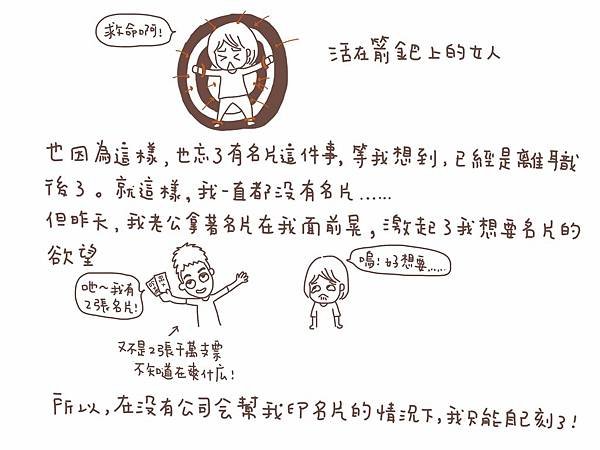 救命啊!
活在箭鈀上的女人
也因為這樣,也忘了有名片這件事,等我想到,已經是離職
後了。就這樣,我一直都沒有名片......
但昨天,我老公拿著名片在我面前晃,激起了我想要名片的
欲望
吔~我有
2張名片!
嗚!好想要......
又不是2張千萬支票
不知道在爽什広!
所以,在沒有公司会幫我印名片的情況下,我只能自己刻了!